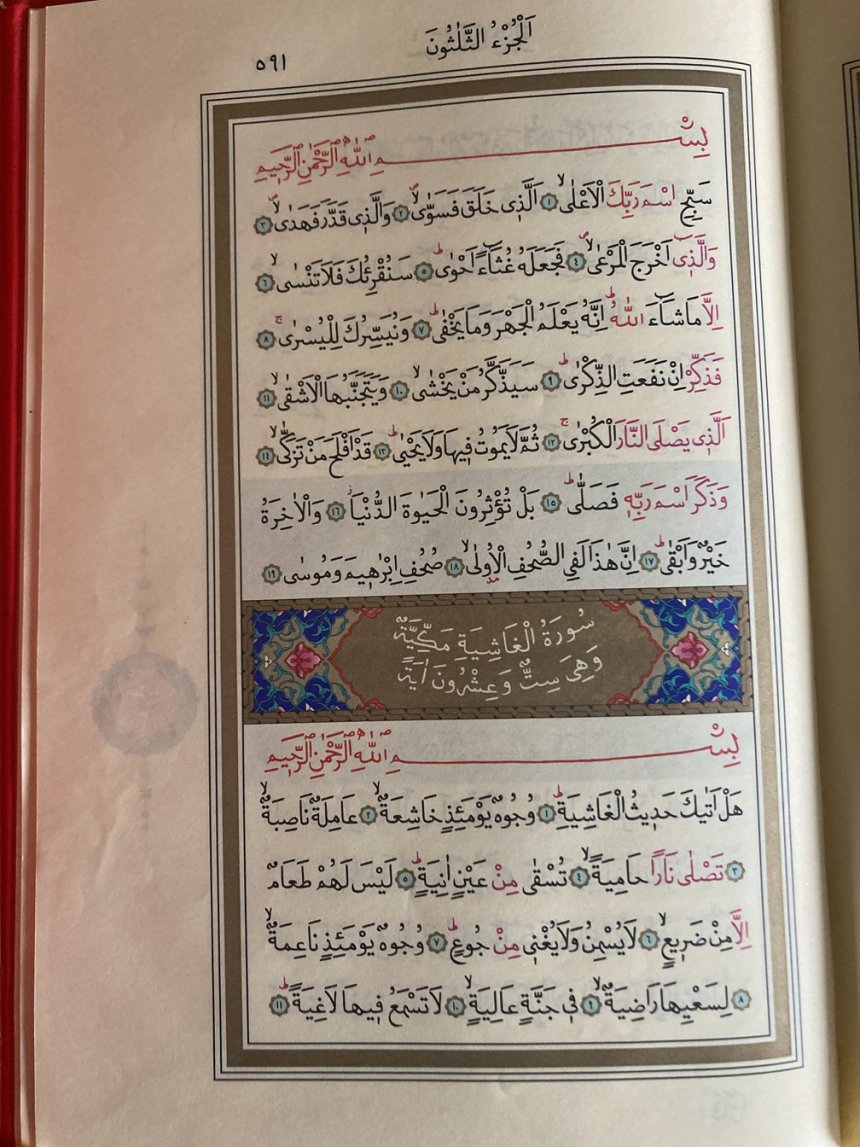 اَلْجُزْءُ الثَّلٰثُونَ
٥٩١
بِسْــــــمِ اللّٰهِ الرَّحْمٰنِ الرَّح۪يمِ
سَبِّحِ اسْمَ رَبِّكَ الْاَعْلٰىۙ ﴿١﴾ اَلَّذ۪ى خَلَقَ فَسَوّٰىۙۖ ﴿٢﴾ وَالَّذ۪ى قَدَّرَ فَهَدٰىۙۖ ﴿٣﴾
وَالَّذ۪ٓى اَخْرَجَ الْمَرْعٰىۙۖ ﴿٤﴾ فَجَعَلَهُ غُثَٓاءً اَحْوٰىۜ ﴿٥﴾ سَنُقْرِئُكَ فَلَا تَنْسٰىۙ ﴿٦﴾
اِلَّا مَاشَٓاءَ اللّٰهُۜ اِنَّهُ يَعْلَمُ الْجَهْرَ وَمَا يَخْفٰىۜ ﴿٧﴾ وَنُيَسِّرُكَ لِلْيُسْرٰىۚ ﴿٨﴾
فَذَكِّرْ اِنْ نَفَعَتِ الذِّكْرٰىۜ ﴿٩﴾ سَيَذَّكَّرُ مَنْ يَخْشٰىۙ ﴿١٠﴾ وَيَتَجَنَّبُهَا الْاَشْقٰىۙ ﴿١١﴾
اَلَّذ۪ى يَصْلَى النَّارَ الْكُبْرٰىۚ ﴿١٢﴾ ثُمَّ لَا يَمُوتُ ف۪يهَا وَلَا يَحْيٰىۜ ﴿١٣﴾ قَدْ اَفْلَحَ مَنْ تَزَكّٰىۙ ﴿١٤﴾
وَذَكَرَ اسْمَ رَبِّه۪ فَصَلّٰىۜ ﴿١٥﴾ بَلْ تُؤْثِرُونَ الْحَيٰوةَ الدُّنْيَاۘ ﴿١٦﴾ وَالْاٰخِرَةُ
خَيْرٌ وَاَبْقٰىۜ ﴿١٧﴾ اِنَّ هٰذَا لَفِى الصُّحُفِ الْاُولٰىۙ ﴿١٨﴾ صُحُفِ اِبْرٰه۪يمَ وَمُوسٰى ﴿١٩﴾
سُورَةُ الْغَاشِيَةِ مَكِّيَّةٌ
وَهِىَ سِتٌّ وَعِشْرُونَ اٰيَةً
بِسْــــــمِ اللّٰهِ الرَّحْمٰنِ الرَّح۪يمِ
هَلْ اَتٰيكَ حَد۪يثُ الْغَاشِيَةِۜ ﴿١﴾ وُجُوهٌ يَوْمَئِذٍ خَاشِعَةٌۙ ﴿٢﴾ عَامِلَةٌ نَاصِبَةٌۙ
﴿٣﴾ تَصْلٰى نَارًا حَامِيَةًۙ ﴿٤﴾ تُسْقٰى مِنْ عَيْنٍ اٰنِيَةٍۜ ﴿٥﴾ لَيْسَ لَهُمْ طَعَامٌ
اِلَّا مِنْ ضَر۪يعٍۙ ﴿٦﴾ لَا يُسْمِنُ وَلَا يُغْن۪ى مِنْ جُوعٍۜ ﴿٧﴾ وُجُوهٌ يَوْمَئِذٍ نَاعِمَةٌۙ
﴿٨﴾ لِسَعْيِهَا رَاضِيَةٌۙ ﴿٩﴾ ف۪ى جَنَّةٍ عَالِيَةٍۙ ﴿١٠﴾ لَا تَسْمَعُ ف۪يهَا لَاغِيَةًۜ ﴿١١﴾